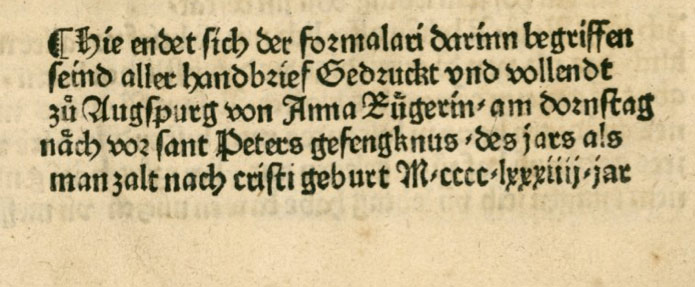 ¶ Hie endet sich der formalari darinn begriffen
seind aller handbrief Gedruckt vnd vollendt
zů Augspurg von Anna Rügerin, am dornstag
nåch vor sant Peters gefengknus, des jars als
man zalt nach cristi geburt M.cccc.lxxxiiij.jar